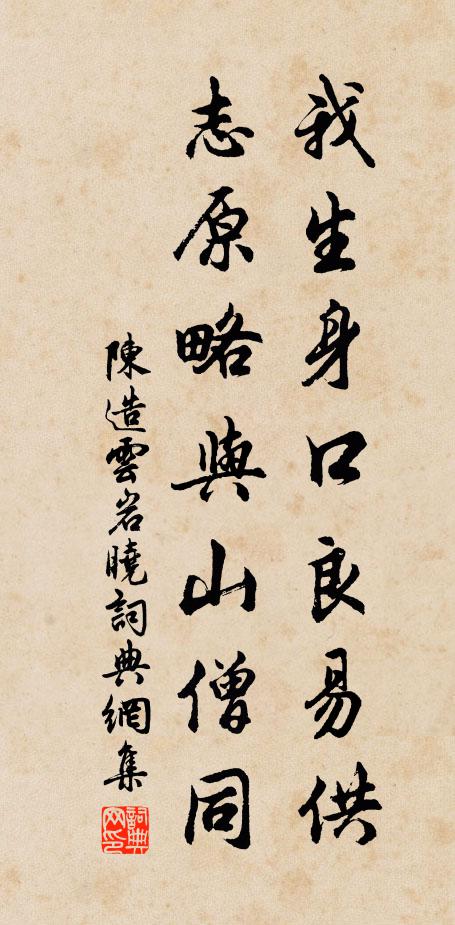 我生身口良易供
志原略與山僧同
陳造雲岩曉詞典網集
詞典网印